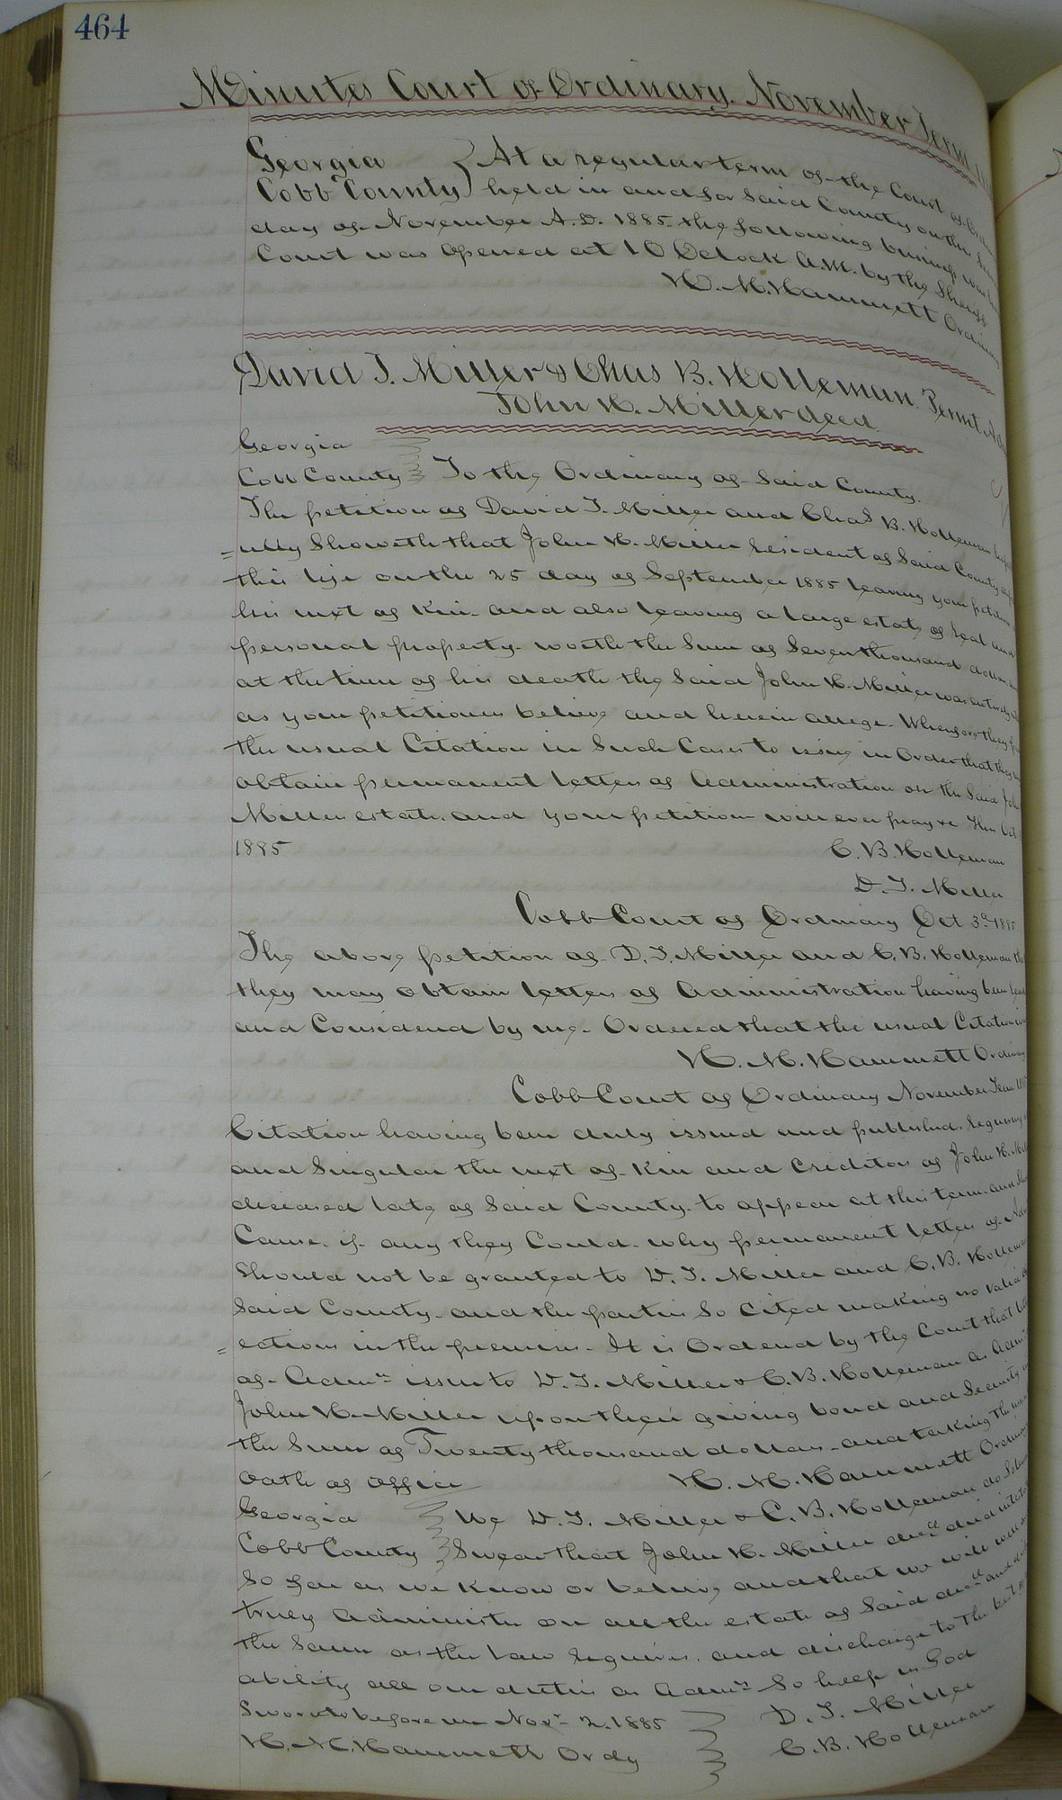 464
Minutes Court of Ordinary. November Term
Georgia
Cobb County } At a regular term of the Court of
held in and for Said County on the
day of November A.D. 1885. the following business was
Court was Opened at 10 Oclock A.M. by the Sheriff
H. M. Hammett Ordinary
David T. Miller & Chas B. Holleman. Permt.
John H. Miller decd.
Georgia
Cobb County } To the Ordinary of Said County.
The petition of David T. Miller and Chas B. Holleman
=ully Showeth that John H. Miller resident of Said County
this life on the 25 day of September 1885 leaving your
his next of Kin. and also leaving a large estate of real and
personal property. worth the Sum of Seven thousand dollars
at the time of his death the Said John H. Miller was
as your petitioners believe and herein allege. Wherefore they
the usual Citation in Such Cases to issue in Order that they
obtain permanent letters of Administration on the Said John
Millers estate. and your petitioners will ever pray &c This Oct
1885
C. B. Holleman
D. T. Miller
Cobb Court of Ordinary Oct 3d 1885
The above petition of D. T. Miller and C. B. Holleman
they may obtain letters of Administration having been
and Considered by me. Ordered that the usual Citation
H. M. Hammett Ordinary
Cobb Court of Ordinary November Term
Citation having been duly issued and published. requiring
and Singular the next of Kin and Creditors of John H.
deceased late of Said County. to appear at this term. and
Cause. if any they Could. why permanent letters of
Should not be granted to D. T. Miller and C. B. Holleman
Said County. and the parties So Cited making no valid
=ections in the premises. It is Ordered by the Court that
of Admn issue to D. T. Miller & C. B. Holleman as
John H. Miller upon their giving bond and Security
the Sum of Twenty thousand dollars. and taking the
Oath of Office
H. M. Hammett Ordinary
Georgia
Cobb County } We D. T. Miller & C. B. Holleman do
Swear that John H. Miller decd died
So far as we Know or believe and that we will
truly Administer on all the estate of Said decd
the Same as the Law requires. and discharge to the best
ability all our duties as Admrs So help us God
Sworn to before me Nov. 2. 1885
D. T. Miller
H. M. Hammett Ordy
C. B. Holleman